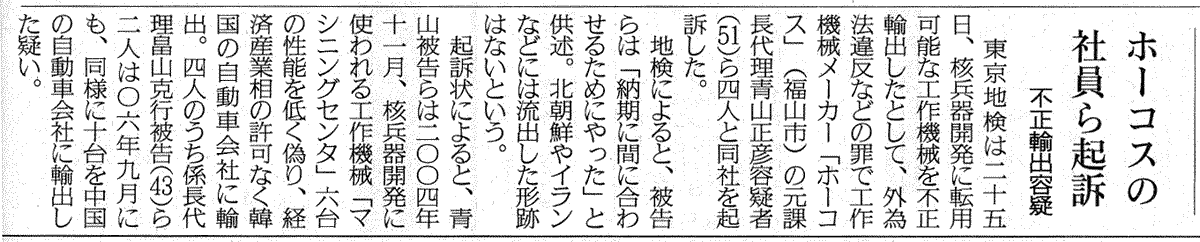 ホーコスの
社員ら起訴
不正輸出容疑
　東京地検は二十五
日、核兵器開発に転用
可能な工作機械を不正
輸出したとして、外為
法違反などの罪で工作
機械メーカー「ホーコ
ス」（福山市）の元課
長代理青山正彦容疑者
(51)ら四人と同社を起
訴した。
　地検によると、被告
らは「納期に間に合わ
せるためにやった」と
供述。北朝鮮やイラン
などには流出した形跡
はないという。
　起訴状によると、青
山被告らは二〇〇四年
十一月、核兵器開発に
使われる工作機械「マ
シニングセンタ」六台
の性能を低く偽り、経
済産業相の許可なく韓
国の自動車会社に輸
出。四人のうち係長代
理畠山克行被告(43)ら
二人は〇六年九月に
も、同様に十台を中国
の自動車会社に輸出し
た疑い。